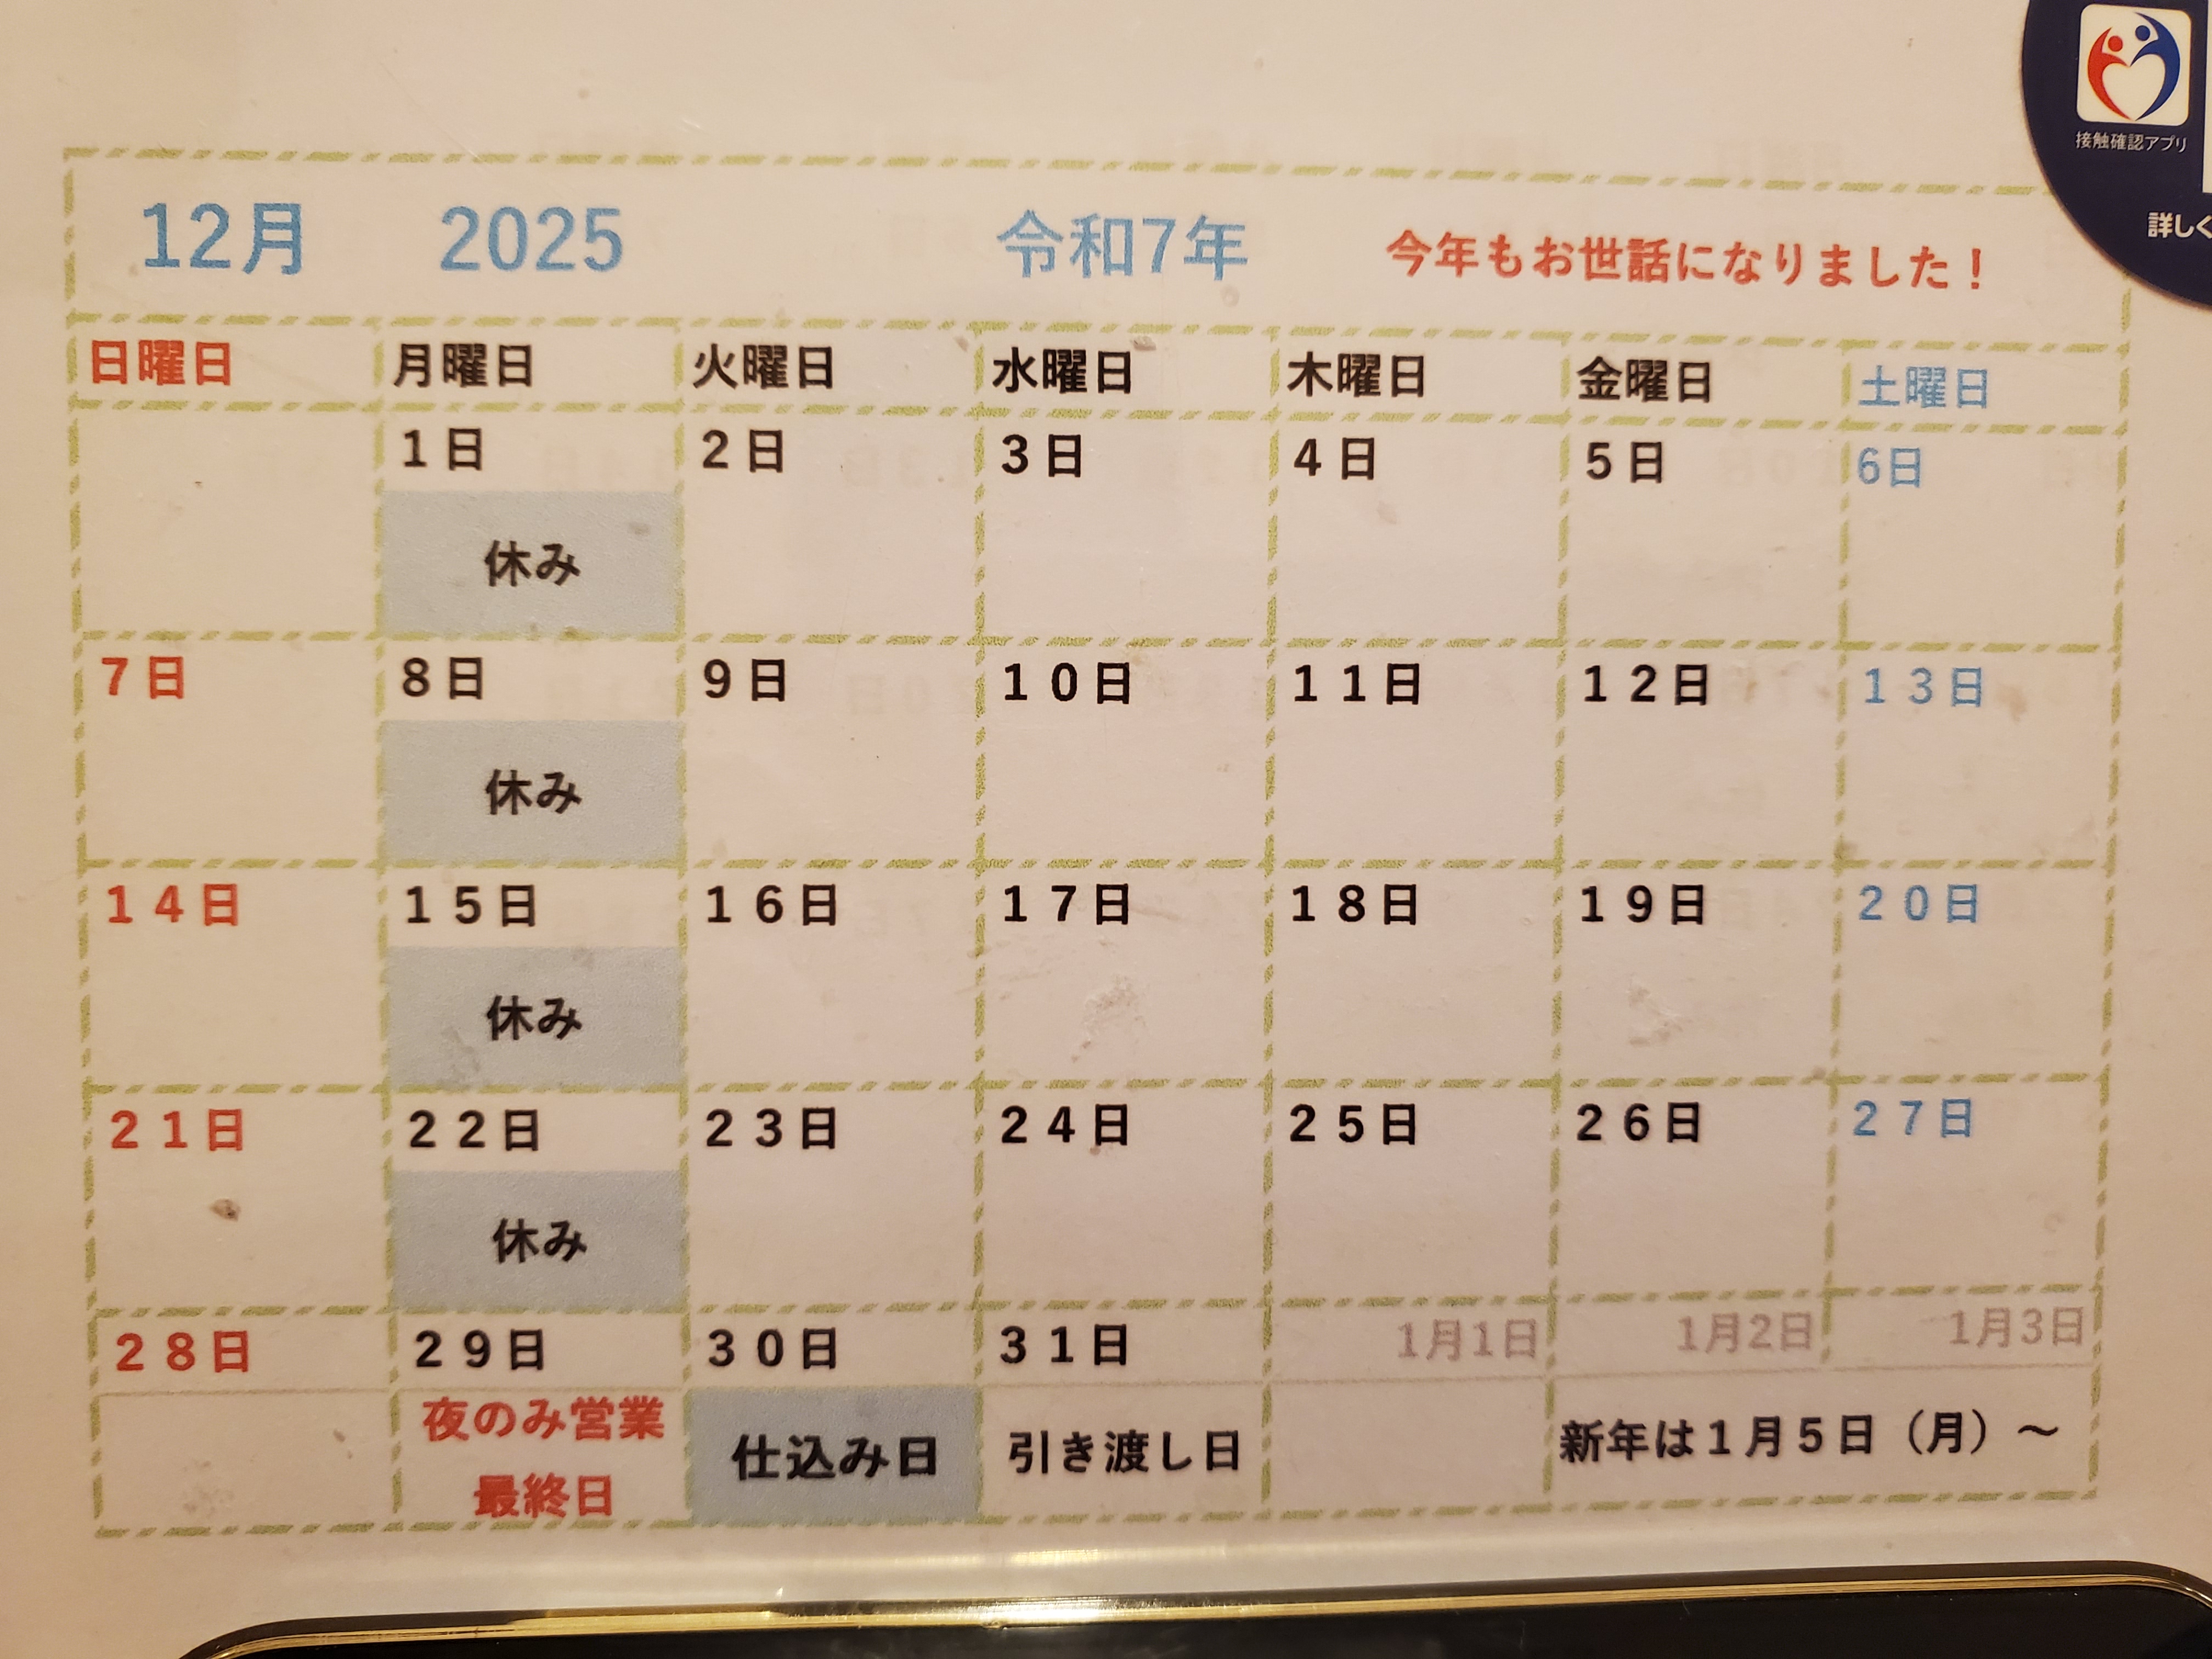 接触確認アプリ
詳しく
12月 2025 令和7年 今年もお世話になりました！
日曜日 月曜日 火曜日 水曜日 木曜日 金曜日 土曜日
1日 2日 3日 4日 5日 6日
休み
7日 8日 9日 10日 11日 12日 13日
休み
14日 15日 16日 17日 18日 19日 20日
休み
21日 22日 23日 24日 25日 26日 27日
休み
28日 29日 30日 31日 1月1日 1月2日 1月3日
夜のみ営業
最終日
仕込み日 引き渡し日 新年は1月5日（月）～